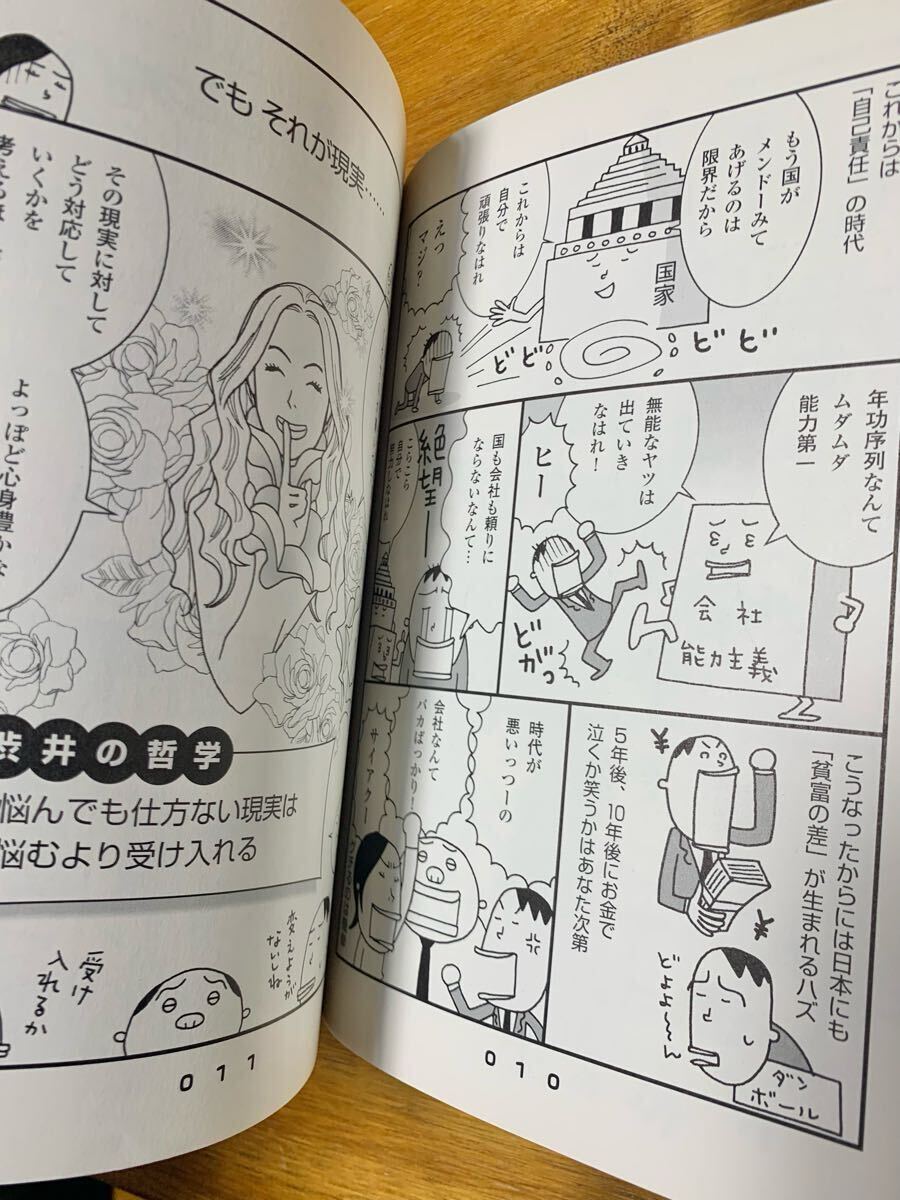 これからは
「自己責任」の時代
もう国が
メンドーみて
あげるのは
限界だから
国家
これからは
自分で
頑張りなはれ
えっ
マジ?
ビビ
ビビ
年功序列なんて
ムダムダ
能力第一
会社
能力主義
無能なヤツは
出ていき
なはれ!
ヒー
どがっ
国も会社も頼りに
ならないなんて…
絶望ー
こらこら
自分で
努力しなはれ
こうなったからには日本にも
「貧富の差」が生まれるハズ
¥
¥
どよよ〜〜ん
ダン
ボール
5年後、10年後にお金で
泣くか笑うかはあなた次第
時代が
悪いっつーの
会社なんて
バカばっかり!
サイアクー
010
でも それが現実……
その現実に対して
どう対応して
いくかを
考えるほ
よっぽど心身豊かな
渋井の哲学
悩んでも仕方ない現実は
悩むより受け入れる
変えようが
ないしね
受け
入れるか
011